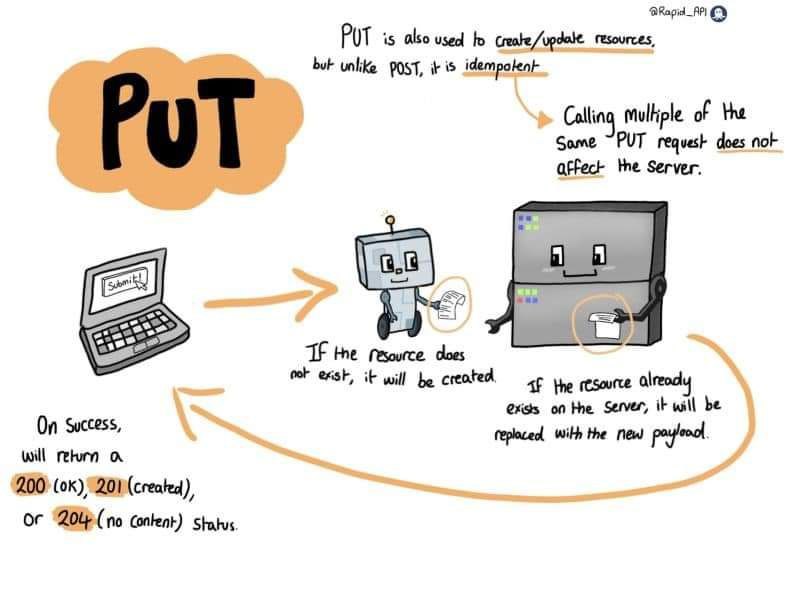 @Rapid_API
PUT is also used to create/update resources,
but unlike POST, it is idempotent
PUT
Calling multiple of the
same PUT request does not
affect the server.
Submit!
If the resource does
not exist, it will be created.
If the resource already
exists on the server, it will be
replaced with the new payload.
On Success,
will return a
200 (OK), 201 (created),
or 204 (no content) status.